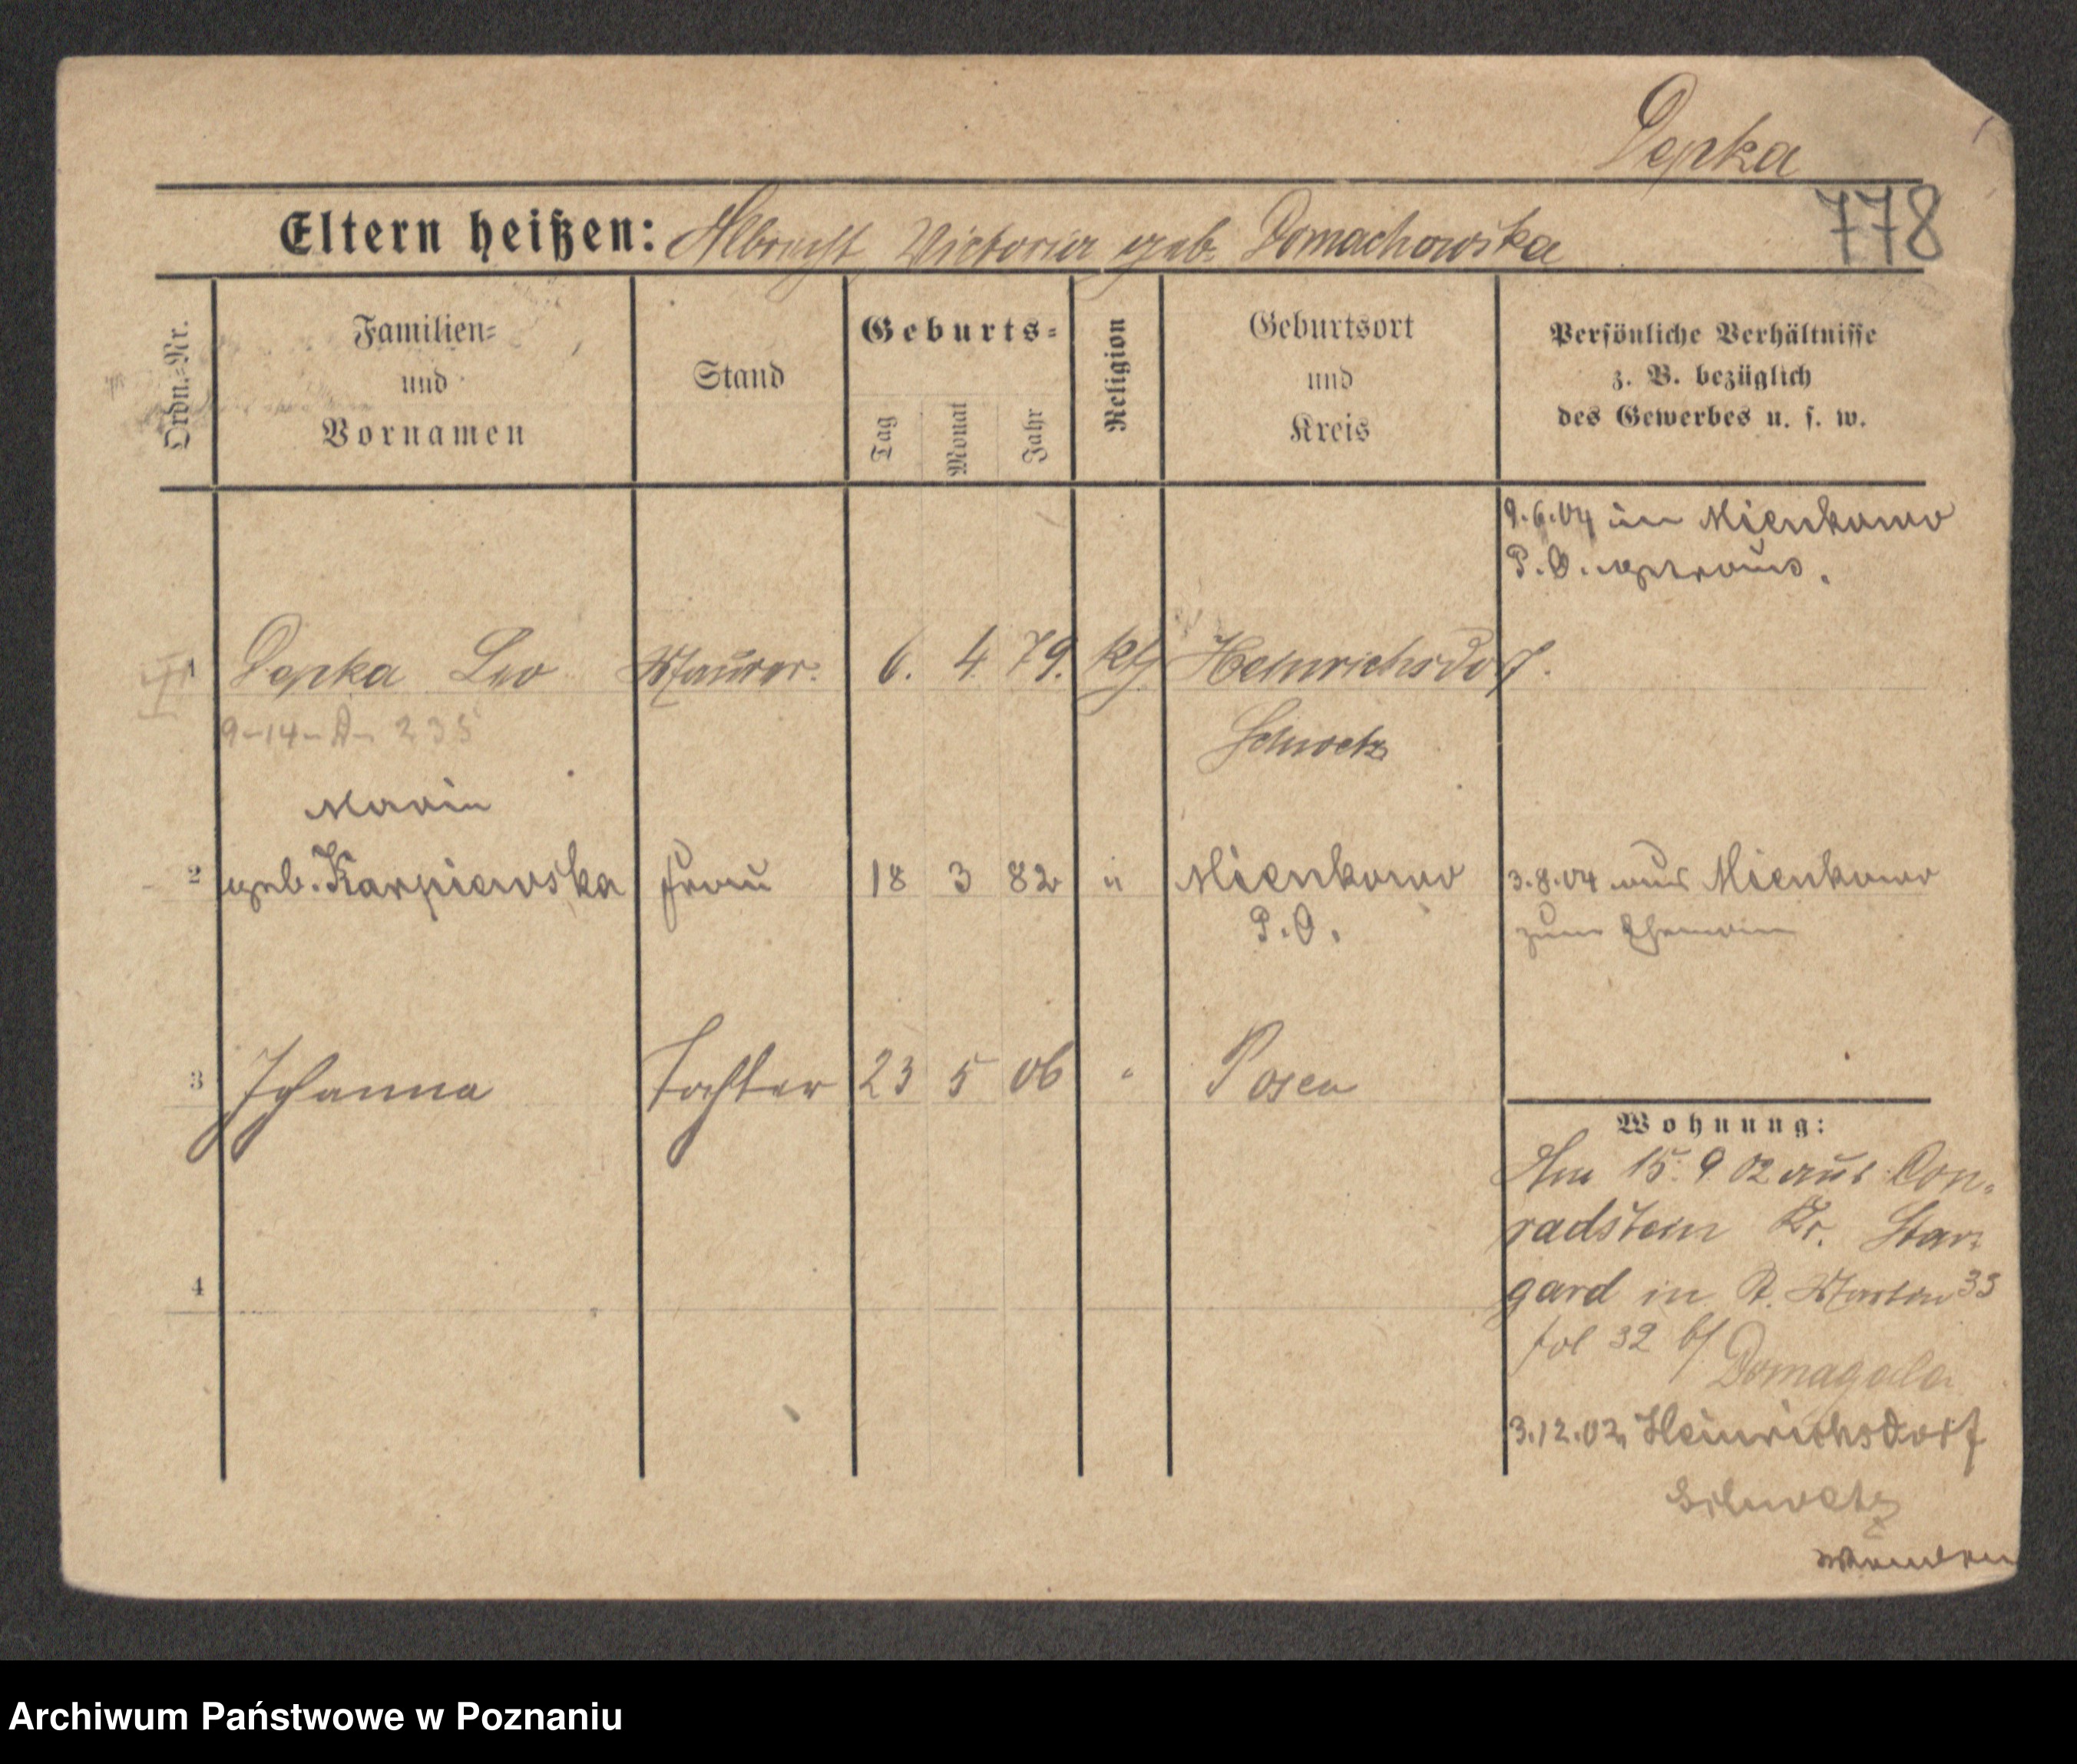 Depka
778
Eltern heißen: Albrecht Victoria geb. Domachowska
Ordn.-Nr.
Familien- und Vornamen
Stand
Geburts-
Tag
Monat
Jahr
Religion
Geburtsort und Kreis
Persönliche Verhältnisse
z. B. bezüglich
des Gewerbes u. s. w.
9.6.04 in Mienkowo
P.O. getraut.
1 Depka Leo Maurer. 6. 4. 79. kth Heinrichsdorf.
9-14-A- 235
Schwetz
Maria
2 geb. Karpiewska Frau 18 3 82 " Mienkowo
P.O.
3.8.04 aus Mienkowo
zum Ehemann
3 Johanna Tochter 23 5 06 " Posen
4
Wohnung:
Am 15. 9 02 aus Con-
radstein Kr. Star-
gard in St. Martin 33
fol 32 bf
Domagala
3.12.02, Heinrichsdorf
Schwetz